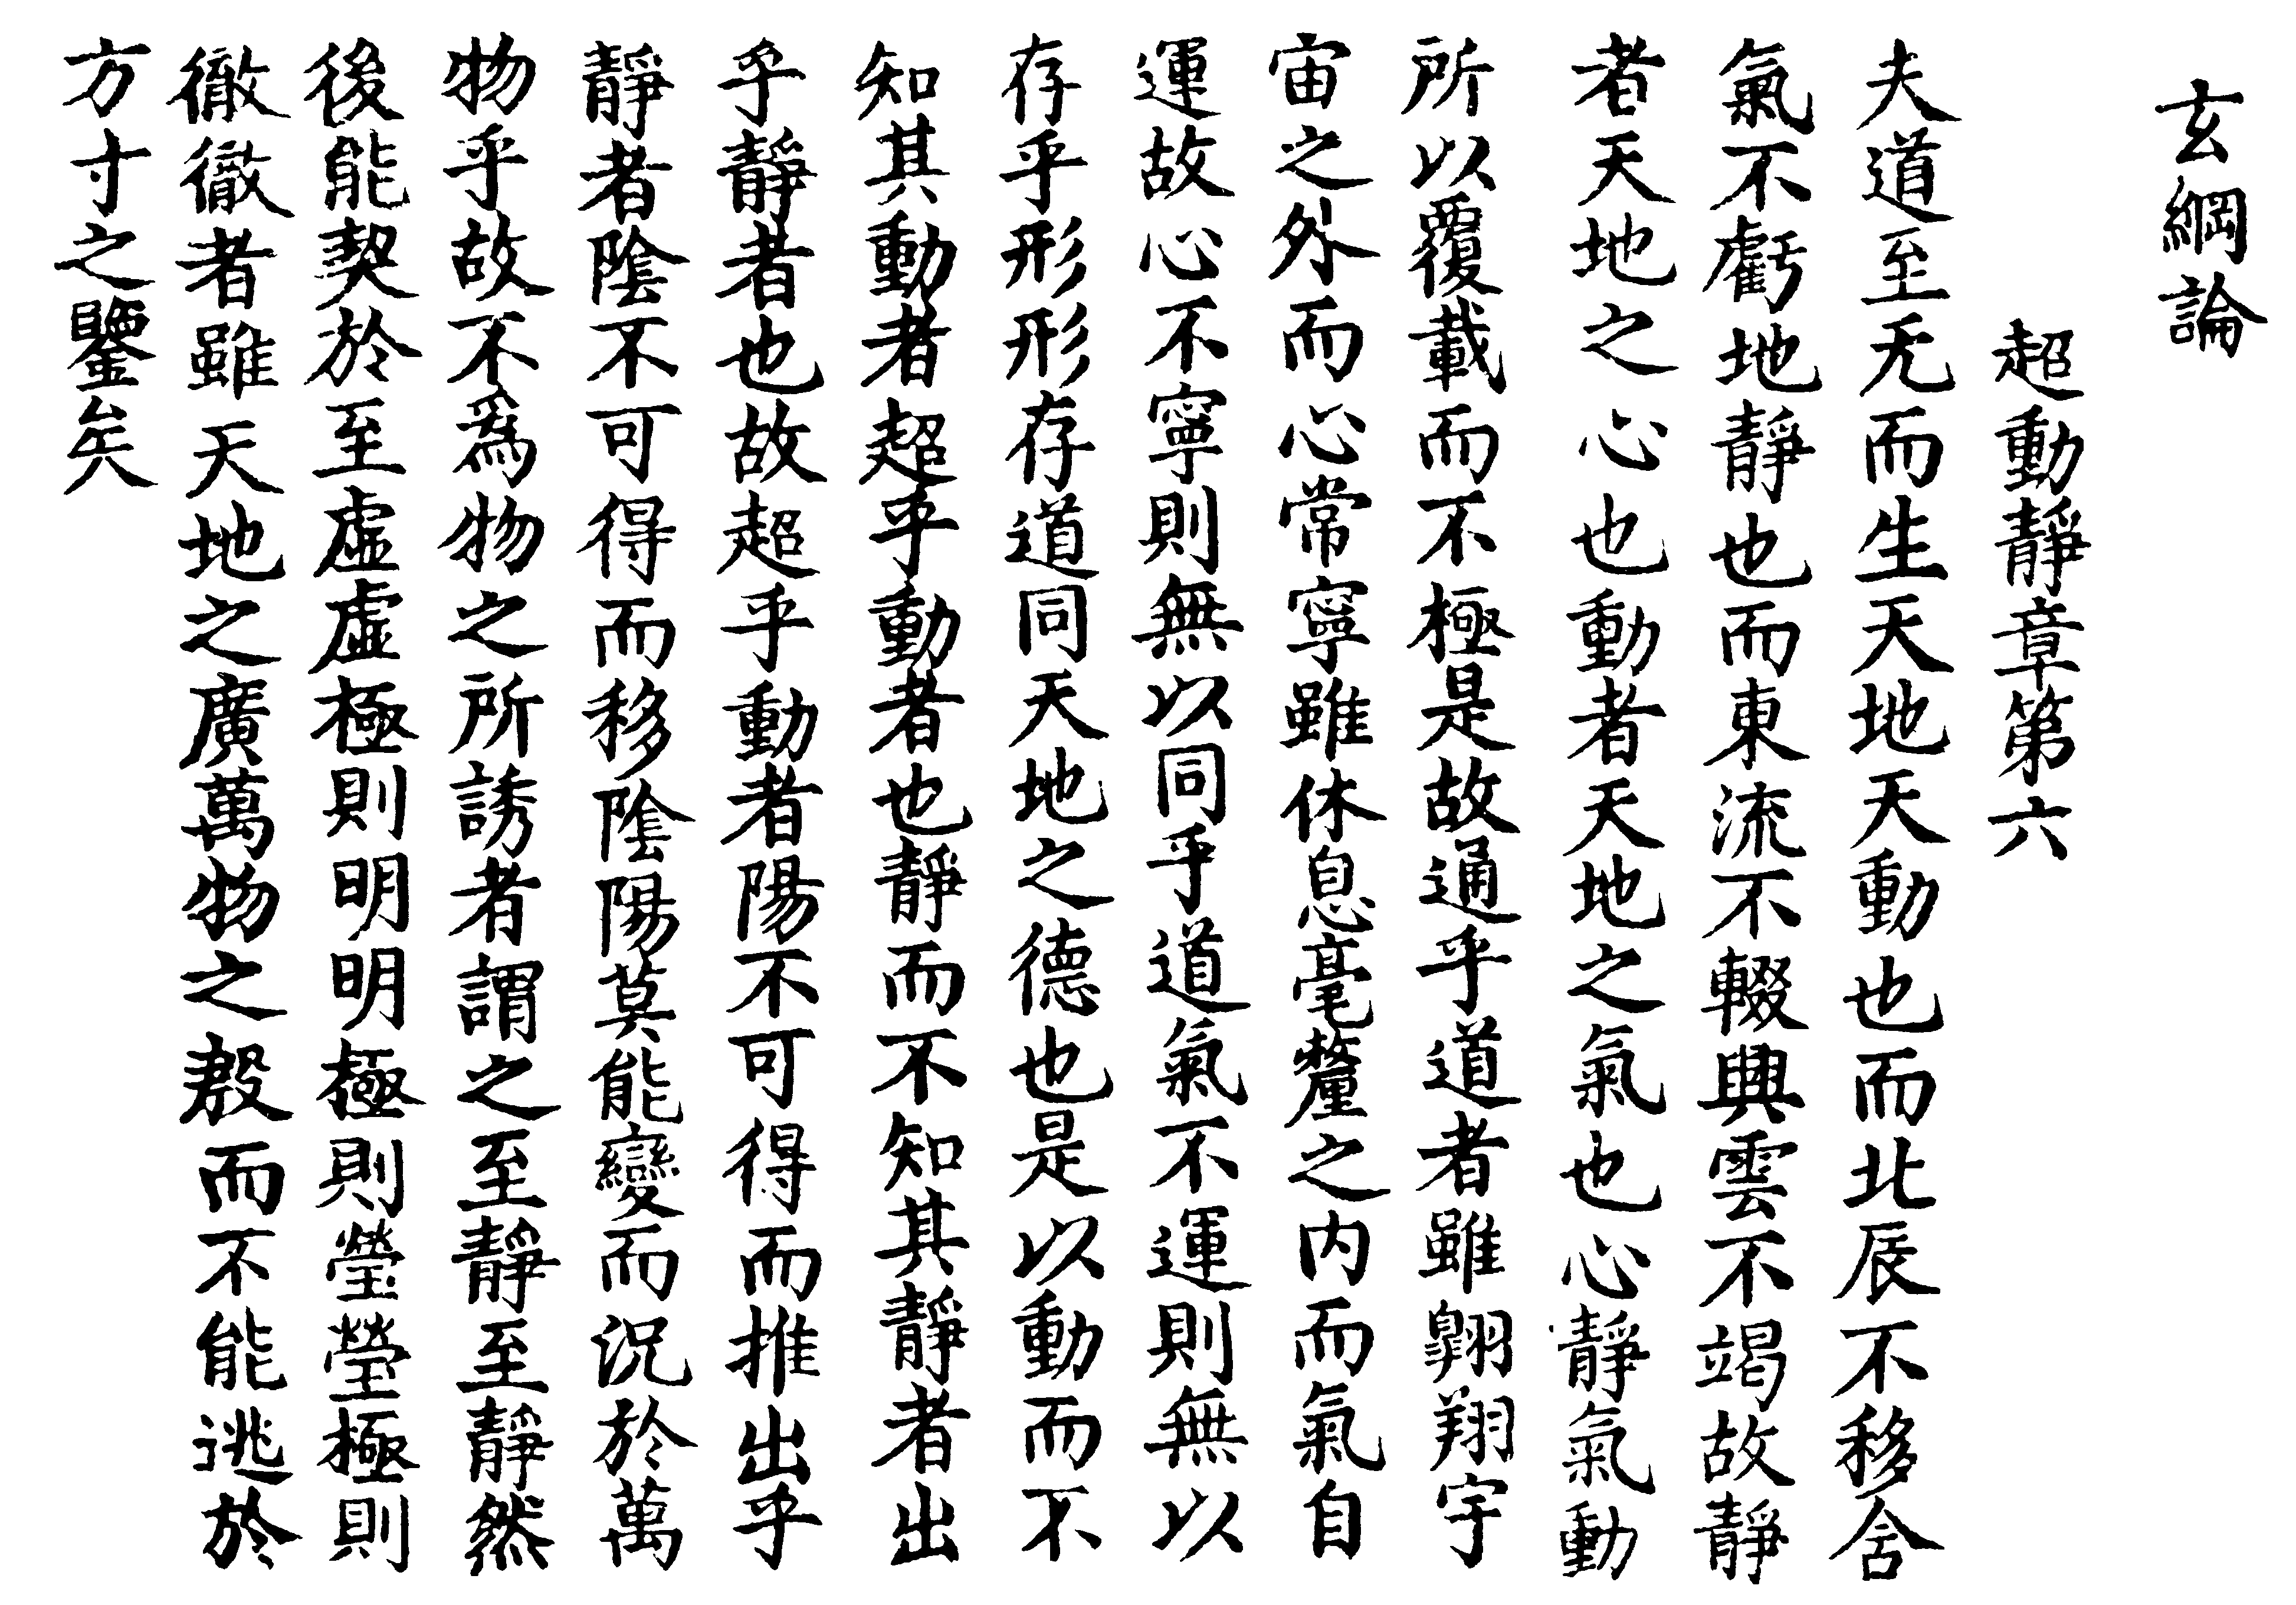 玄綱論
超動靜章第六
夫道至无而生天地天動也而北辰不移含
氣不虧地靜也而東流不輟興雲不竭故靜
者天地之心也動者天地之氣也心靜氣動
所以覆載而不極是故通乎道者雖翺翔宇
宙之外而心常寧雖休息毫釐之内而氣自
運故心不寧則無以同乎道氣不運則無以
存乎形形存道同天地之德也是以動而不
知其動者超乎動者也靜而不知其靜者出
乎靜者也故超乎動者陽不可得而推出乎
靜者陰不可得而移陰陽莫能變而況於萬
物乎故不為物之所誘者謂之至靜至靜然
後能契於至虛虛極則明明極則瑩瑩極則
徹徹者雖天地之廣萬物之殷而不能逃於
方寸之鑒矣